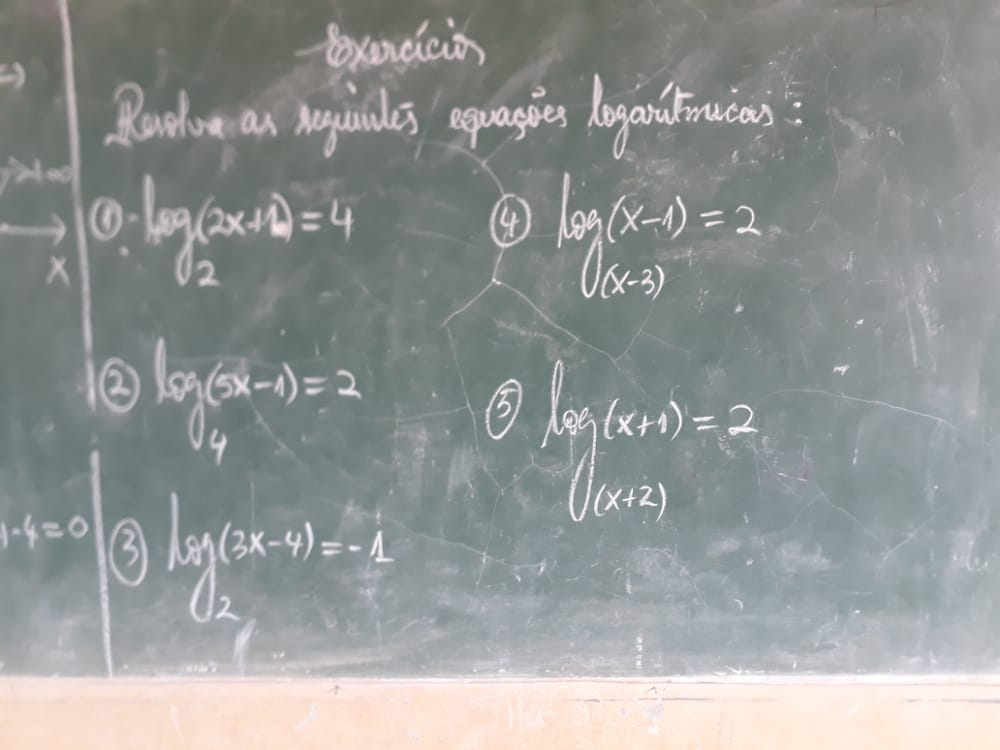 Exercícios
Resolva as seguintes equações logarítmicas:
① log₂(2x+1) = 4
② log₄(5x-1) = 2
③ log₂(3x-4) = -1
④ log₍ₓ₋₃₎(x-1) = 2
⑤ log₍ₓ₊₂₎(x+1) = 2
x
-4=0